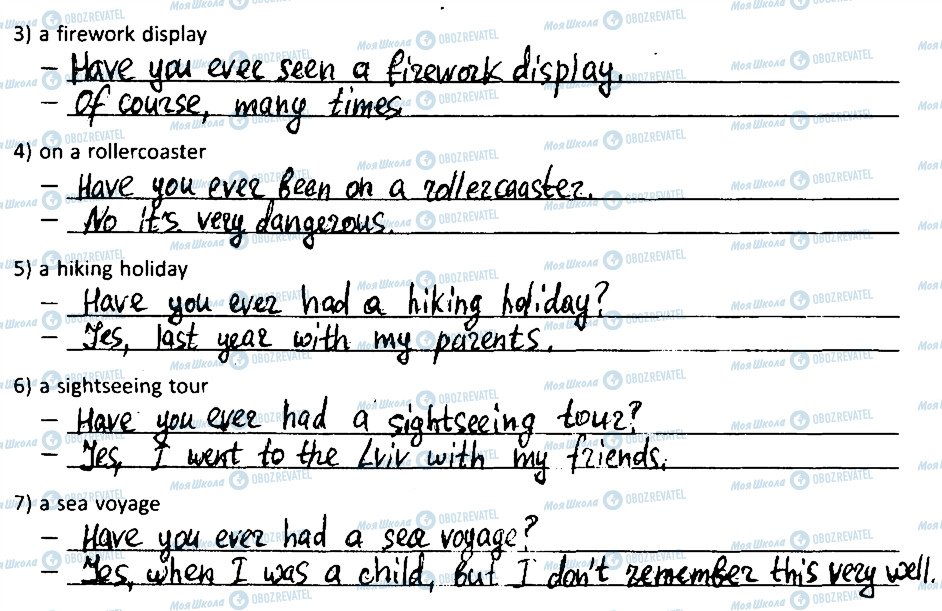 3) a firework display
– Have you ever seen a firework display.
– Of course, many times.
4) on a rollercoaster
– Have you ever been on a rollercoaster.
– No it's very dangerous.
5) a hiking holiday
– Have you ever had a hiking holiday?
– Yes, last year with my parents.
6) a sightseeing tour
– Have you ever had a sightseeing tour?
– Yes, I went to the Lviv with my friends.
7) a sea voyage
– Have you ever had a sea voyage?
– Yes, when I was a child, but I don't remember this very well.
Моя Школа OBOZREVATEL